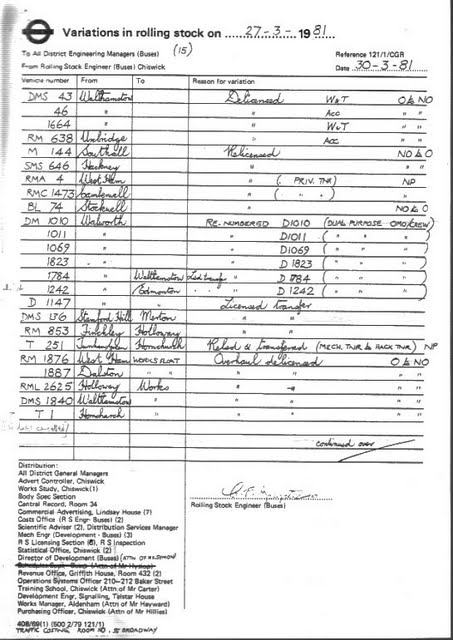 Variations in rolling stock on 27-3-1981
To All District Engineering Managers (Buses) (15) Reference 121/1/CGR
From Rolling Stock Engineer (Buses) Chiswick Date 30-3-81
Vehicle number From To Reason for variation
DMS 43 Walthamstow Delicensed W&T O to NO
46 " " Acc " "
1664 " " W&T " "
RM 638 Uxbridge " Acc " "
M 144 Southall Relicensed NO to O
SMS 646 Hackney " " "
RMA 4 West Ham " (PRIV. TNR) NP
RMC 1473 Camberwell " ( " " )
BL 74 Stockwell " NO to O
DM 1010 Walworth RE-NUMBERED D1010 (DUAL PURPOSE OMO/CREW)
1011 " " D1011 ( " " " )
1069 " " D1069 ( " " " )
1823 " " D1823 ( " " " )
1784 " Walthamstow Lcd transfr " D 784 ( " " " )
1242 " Edmonton " " D 1242 ( " " " )
D 1147 " " Licensed transfer
DMS 136 Stamford Hill Merton " "
RM 853 Finchley Holloway " "
T 251 Hornchurch Relcd & transferred (MECH. TNR to RACK TNR) NP
RM 1876 West Ham WORKS FLOAT Overhaul delicensed O to NO
1887 Dalston " " " " "
RML 2625 Holloway Works " " " "
DMS 1840 Walthamstow " " " " "
T 1 Hornchurch " " " " "
continued over
Distribution:
All District General Managers
Advert Controller, Chiswick
Works Study, Chiswick (1)
Body Spec Section
Central Record, Room 34
Commercial Advertising, Lindsay House (7)
Costs Office (R S Engr- Buses) (2)
Scientific Adviser (2), Distribution Services Manager
Mech Engr (Development - Buses) (3)
R S Licensing Section (6), R S Inspection
Statistical Office, Chiswick (2)
Director of Development (Buses)
Schedules Supt. Buses (Attn of Mr Hyslop)
Revenue Office, Griffith House, Room 432 (2)
Operations Systems Officer 210-212 Baker Street
Training School, Chiswick (Attn of Mr Carter)
Development Engr, Signalling, Telstar House
Works Manager, Aldenham (Attn of Mr Hayward)
Purchasing Officer, Chiswick (Attn of Mr Hillies)
Rolling Stock Engineer (Buses)
408/69(1) (500 2/79 121/1)
TRAFFIC COSTING ROOM NO. 55 BROADWAY